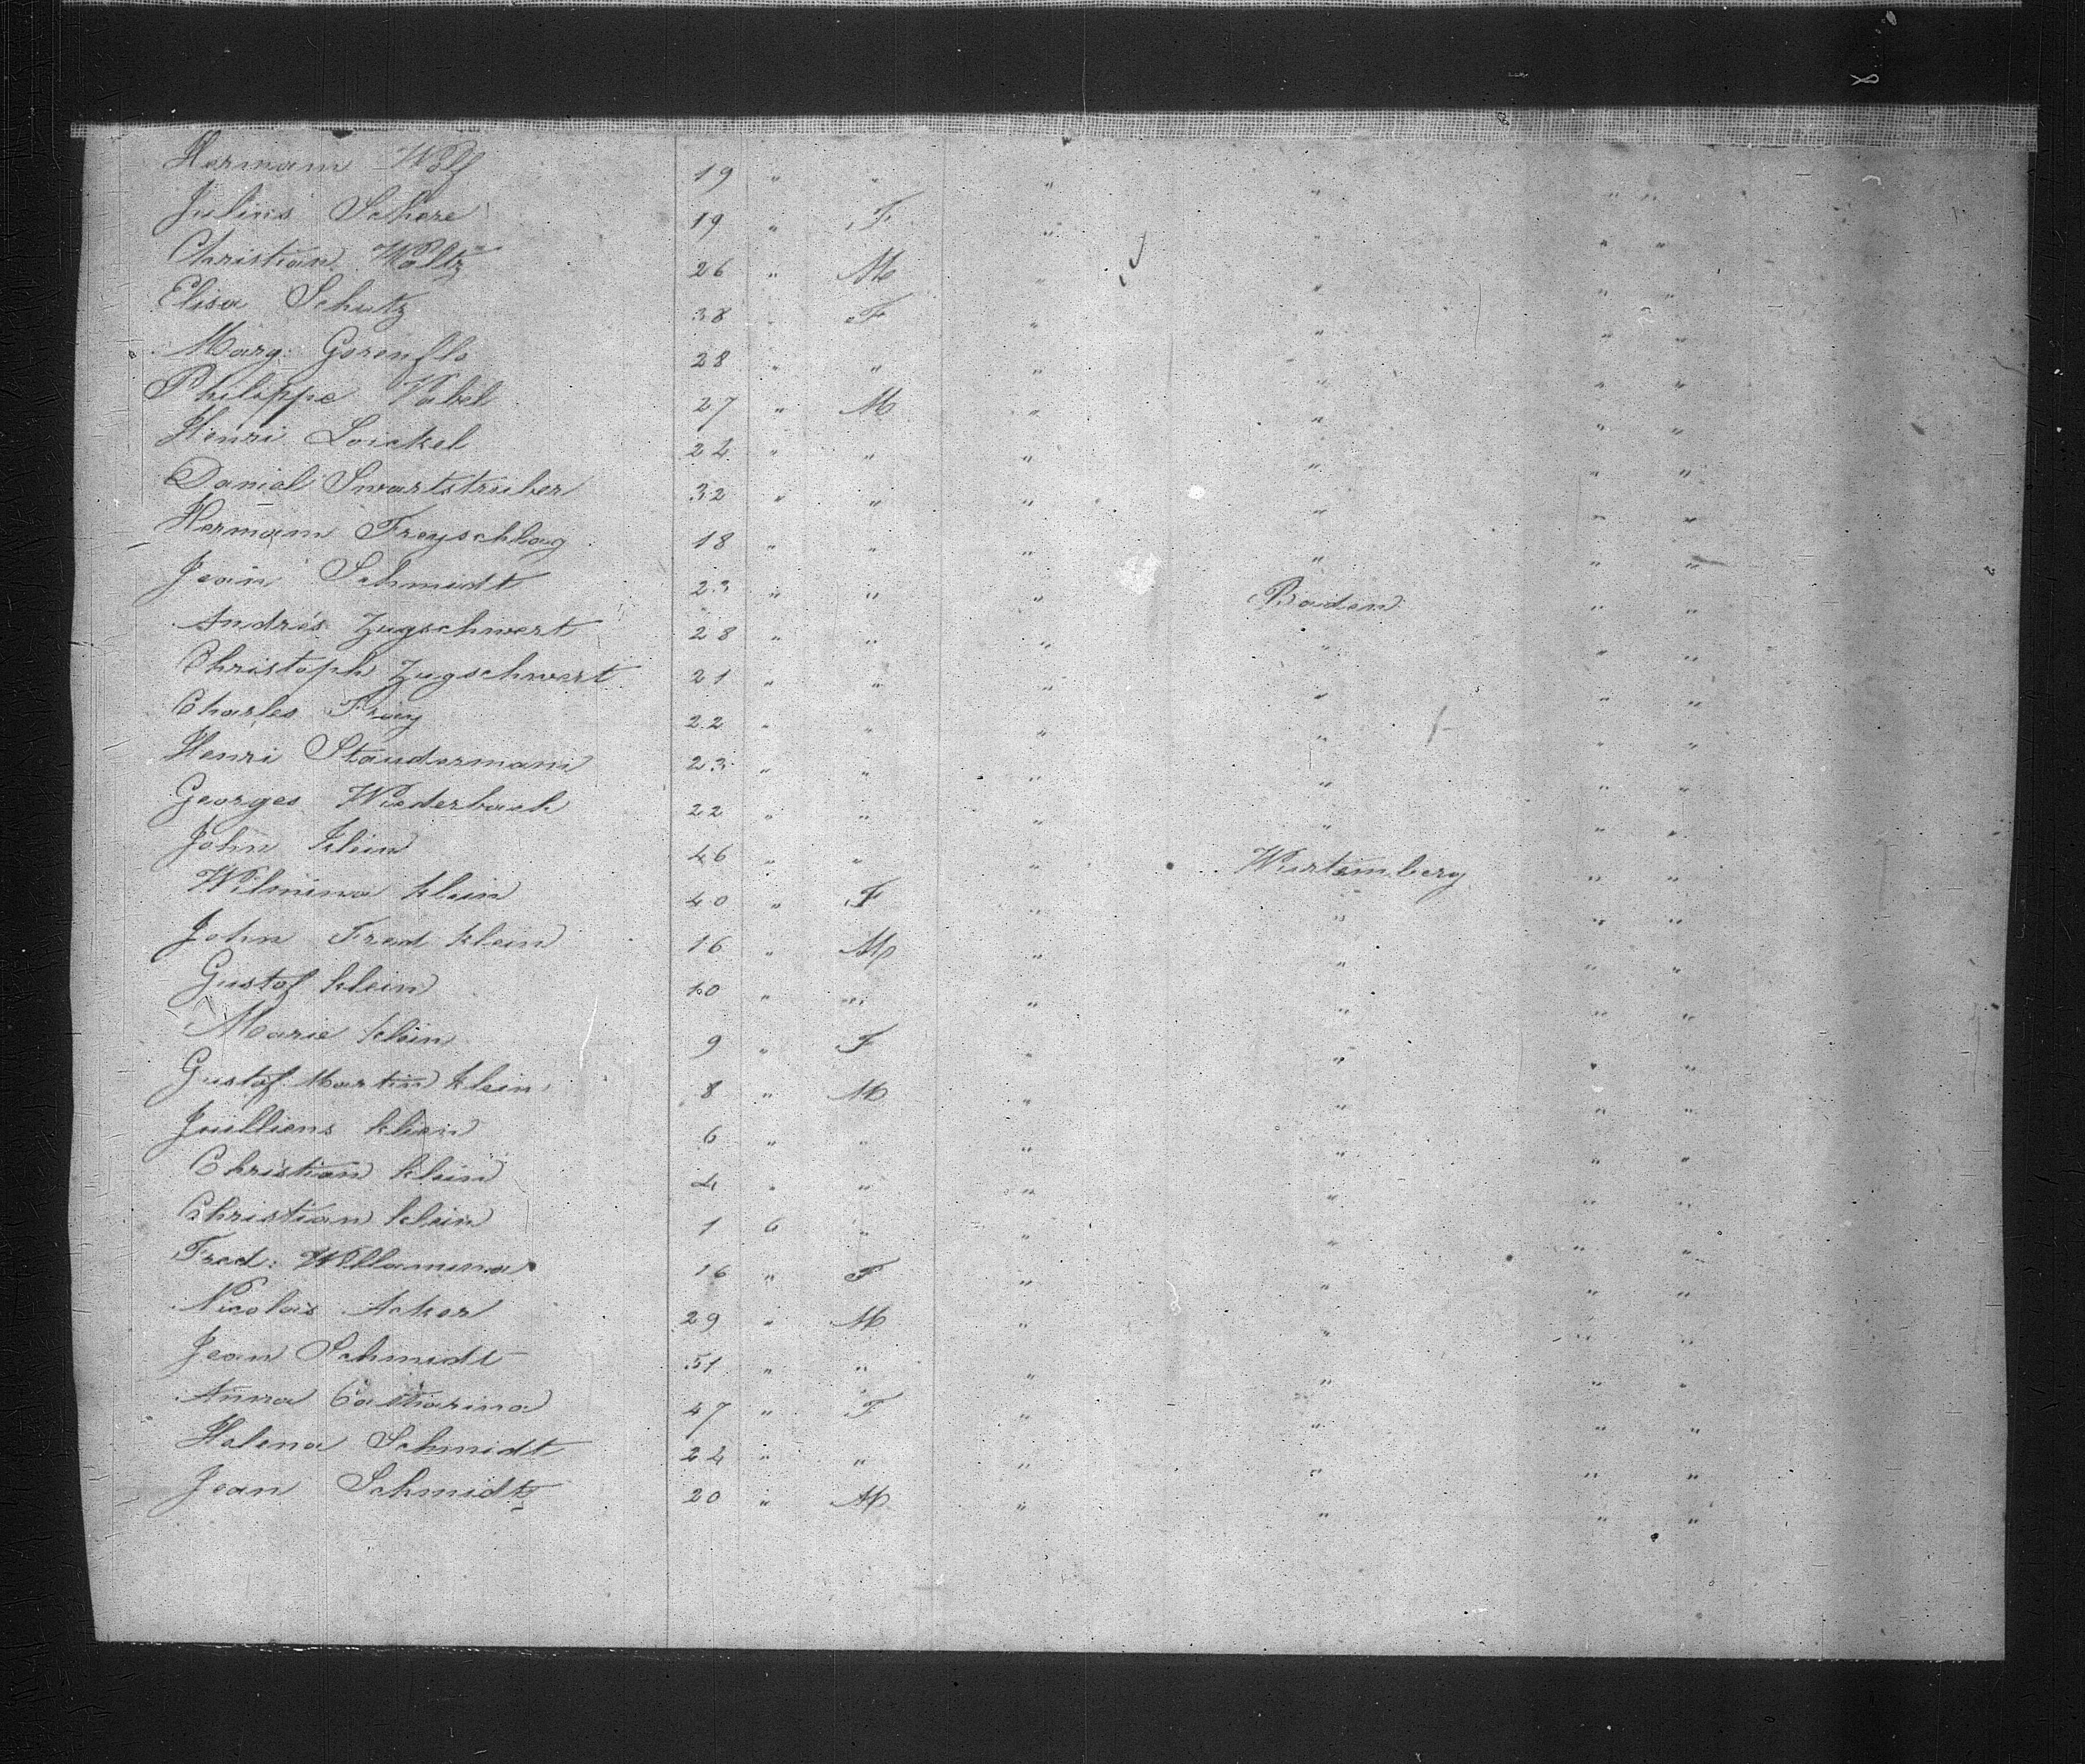 Hermann Wolf 19 " " " " " "
Julius Schere 19 " F " " " "
Christian Woltz 26 " M " " " "
Elisa Schutz 38 " F " " " "
Marg: Gorenflo 28 " " " " " "
Philippe Vabel 27 " M " " " "
Henri Loickel 24 " " " " " "
Daniel Swartstruber 32 " " " " " "
Hermann Freyschlag 18 " " " " " "
Jean Schmidt 23 " " " Baden " "
Andrés Zugschwert 28 " " " " " "
Christoph Zugschwert 21 " " " " " "
Charles Frey 22 " " " " " "
Henri Staudermann 23 " " " " " "
Georges Wiederback 22 " " " " " "
John Klein 46 " " " Wurtemberg " "
Wilmina Klein 40 " F " " " "
John Fred Klein 16 " M " " " "
Gustof Klein 10 " " " " " "
Marie Klein 9 " F " " " "
Gustof Martin Klein 8 " M " " " "
Juilliens Klien 6 " " " " " "
Christian Klein 4 " " " " " "
Christian Klein 1 6 " " " " "
Fred: Willamina 16 " F " " " "
Nicolas Acker 29 " M " " " "
Jean Schmidt 51 " " " " " "
Anna Catharina 47 " F " " " "
Helena Schmidt 24 " " " " " "
Jean Schmidt 20 " M " " " "